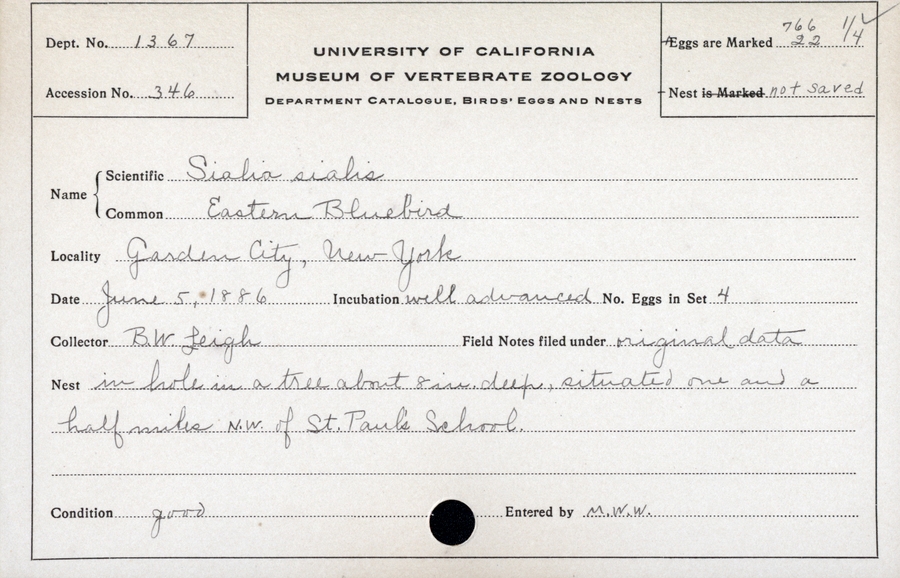 Dept. No. 1367
Accession No. 346
UNIVERSITY OF CALIFORNIA
MUSEUM OF VERTEBRATE ZOOLOGY
DEPARTMENT CATALOGUE, BIRDS' EGGS AND NESTS
Eggs are Marked 766/22 1/4 ✓
Nest is Marked not saved
Name
Scientific Sialia sialis
Common Eastern Bluebird
Locality Garden City, New York
Date June 5, 1886 Incubation well advanced No. Eggs in Set 4
Collector B.W. Leigh Field Notes filed under original data
Nest in hole in a tree about 8 in. deep, situated one and a
half miles N.W. of St. Paul's School.
Condition good Entered by M.W.W.